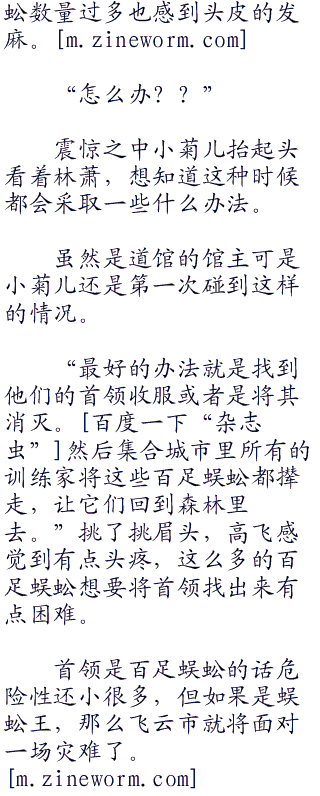 蚣数量过多也感到头皮的发
麻。[m.zineworm.com]
“怎么办？？”
震惊之中小菊儿抬起头
看着林萧，想知道这种时候
都会采取一些什么办法。
虽然是道馆的馆主可是
小菊儿还是第一次碰到这样
的情况。
“最好的办法就是找到
他们的首领收服或者是将其
消灭。[百度一下“杂志
虫”]然后集合城市里所有的
训练家将这些百足蜈蚣都撵
走，让它们回到森林里
去。”挑了挑眉头，高飞感
觉到有点头疼，这么多的百
足蜈蚣想要将首领找出来有
点困难。
首领是百足蜈蚣的话危
险性还小很多，但如果是蜈
蚣王，那么飞云市就将面对
一场灾难了。
[m.zineworm.com]